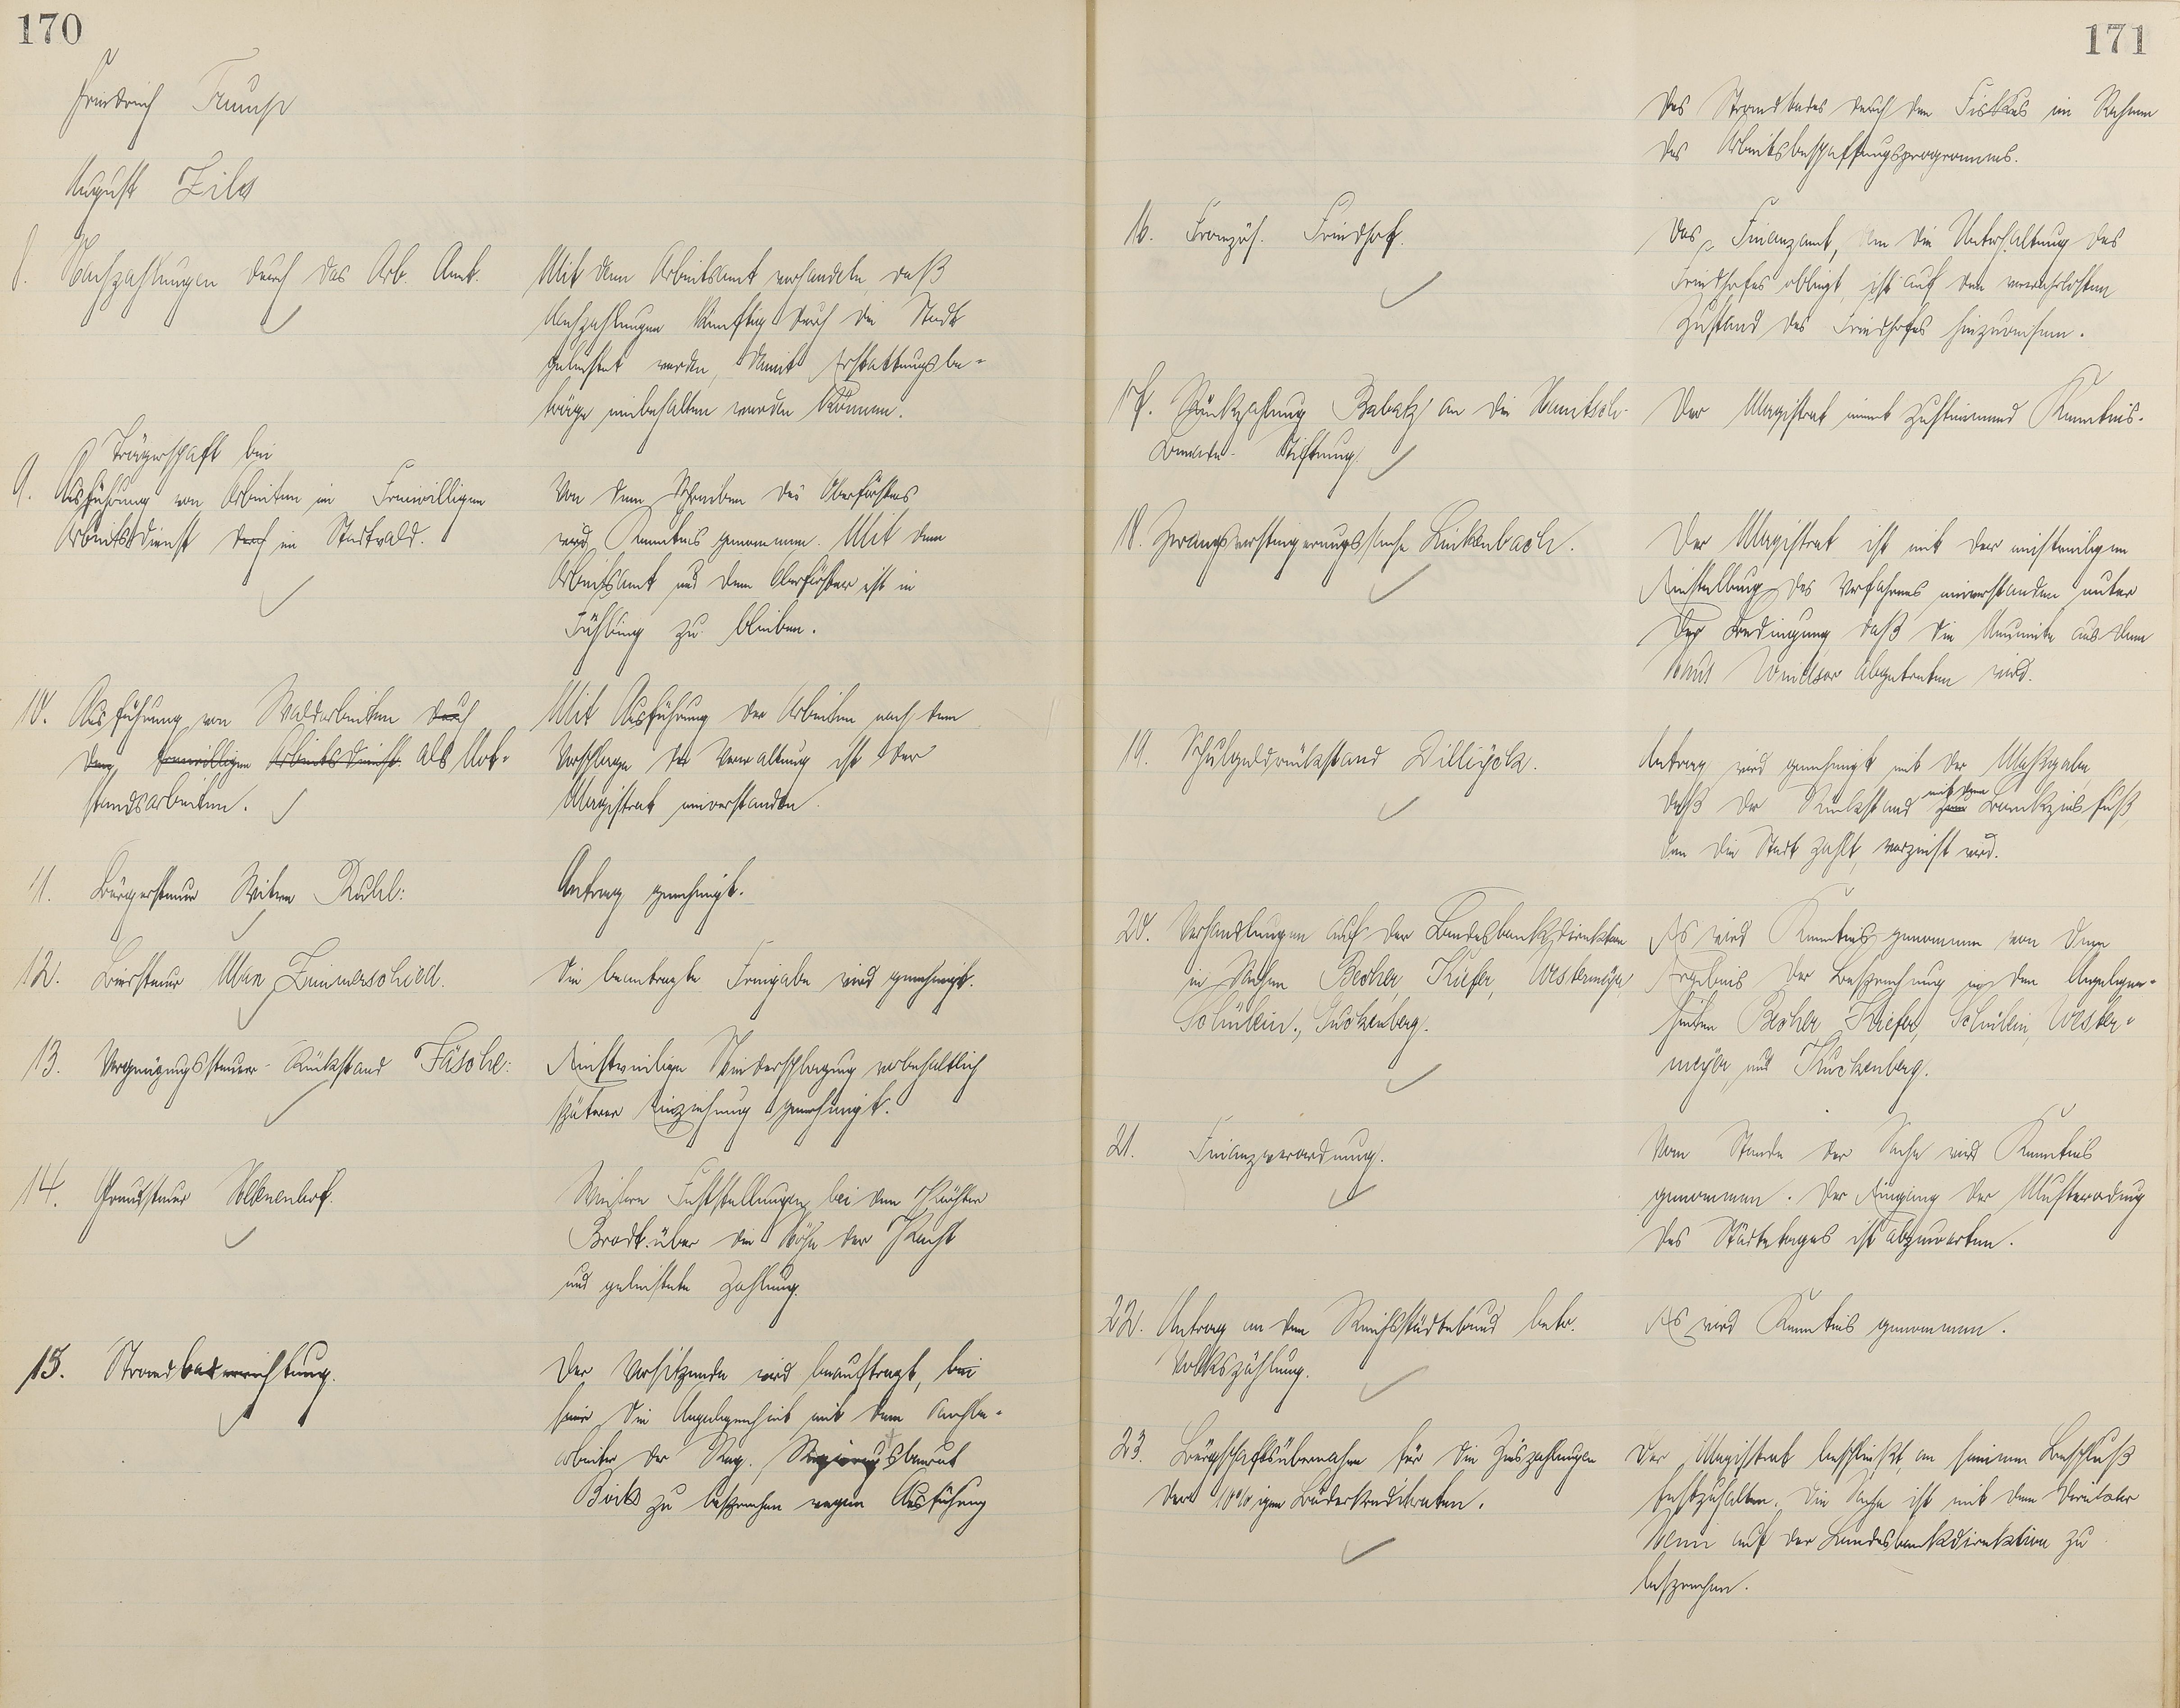 170
Friedrich Trumpp
August Zils
8. Nachzahlungen durch das Arb. Amt.
Mit dem Arbeitsamt verhandeln, daß
Nachzahlungen künftig durch die Stadt
geleistet werden, damit Erstattungsbe-
träge einbehalten werden können.
Trägerschaft bei
9. Ausführung von Arbeiten im Freiwilligen
Arbeitsdienst durch im Stadtwald.
Von dem Schreiben des Oberförsters
wird Kenntnis genommen. Mit dem
Arbeitsamt und dem Oberförster ist in
Fühlung zu bleiben.
10. Ausführung von Waldarbeiten durch
den freiwilligen Arbeitsdienst als Not-
standsarbeiten.
Mit Ausführung der Arbeiten nach dem
Vorschlage der Verwaltung ist der
Magistrat einverstanden.
11. Bürgersteuer Witwe Ruhl:
Antrag genehmigt.
12. Biersteuer Wwe Zimmerschied.
Die beantragte Freigabe wird genehmigt.
13. Vergnügungssteuer-Rückstand Fäsche:
Einstweilige Niederschlagung vorbehaltlich
späterer Einziehung genehmigt.
14. Grundsteuer
Weitere Feststellungen bei dem Pächter
Brodt über die Höhe der Pacht
und geleistete Zahlung.
15. Strandbaderrichtung.
Der Vorsitzende wird beauftragt, bei
hier die Angelegenheit mit dem Sachbe-
arbeiter der Reg. Regierungsbaurat
zu besprechen wegen Ausführung
171
des Strandbades durch den Fiskus im Rahmen
des Arbeitsbeschaffungsprogramms.
16. Französ. Friedhof.
Das Finanzamt, dem die Unterhaltung des
Friedhofes obliegt, ist auf den verwahrlosten
Zustand des Friedhofes hinzuweisen.
17. Rückzahlung Babatz an die
Stiftung.
Der Magistrat nimmt zustimmend Kenntnis.
18. Zwangsversteigerungssache Linkenbach.
Der Magistrat ist mit der einstweiligen
Einstellung des Verfahrens einverstanden unter
der Bedingung, daß die aus dem
abgetreten wird.
19. Schulgeldrückstand Dillijock.
Antrag wird genehmigt mit der Maßgabe,
daß der Rückstand zum mit dem Bankzinsfuß,
den die Stadt zahlt, verzinst wird.
20. Verhandlungen auf der Landesbankdirektion
in Sachen Becher, Kiefer, Westermeyer,
Schüllein, Kuckenberg.
Es wird Kenntnis genommen von dem
Ergebnis der Besprechung in den Angelegen-
heiten Becher, Kiefer, Schüllein, Wester-
meyer und Kuckenberg.
21. Finanzverordnung.
Vom Stande der Sache wird Kenntnis
genommen. Der Eingang der
des Städtetages ist abzuwarten.
22. Antrag an den Reichsstädtebund betr.
Volkszählung.
Es wird Kenntnis genommen.
23. Bürgschaftsübernahme für die Zinszahlungen
der 10%igen Bäderkreditraten.
Der Magistrat beschließt, an seinem Beschluß
festzuhalten. Die Sache ist mit dem Direktor
auf der Landesbankdirektion zu
besprechen.